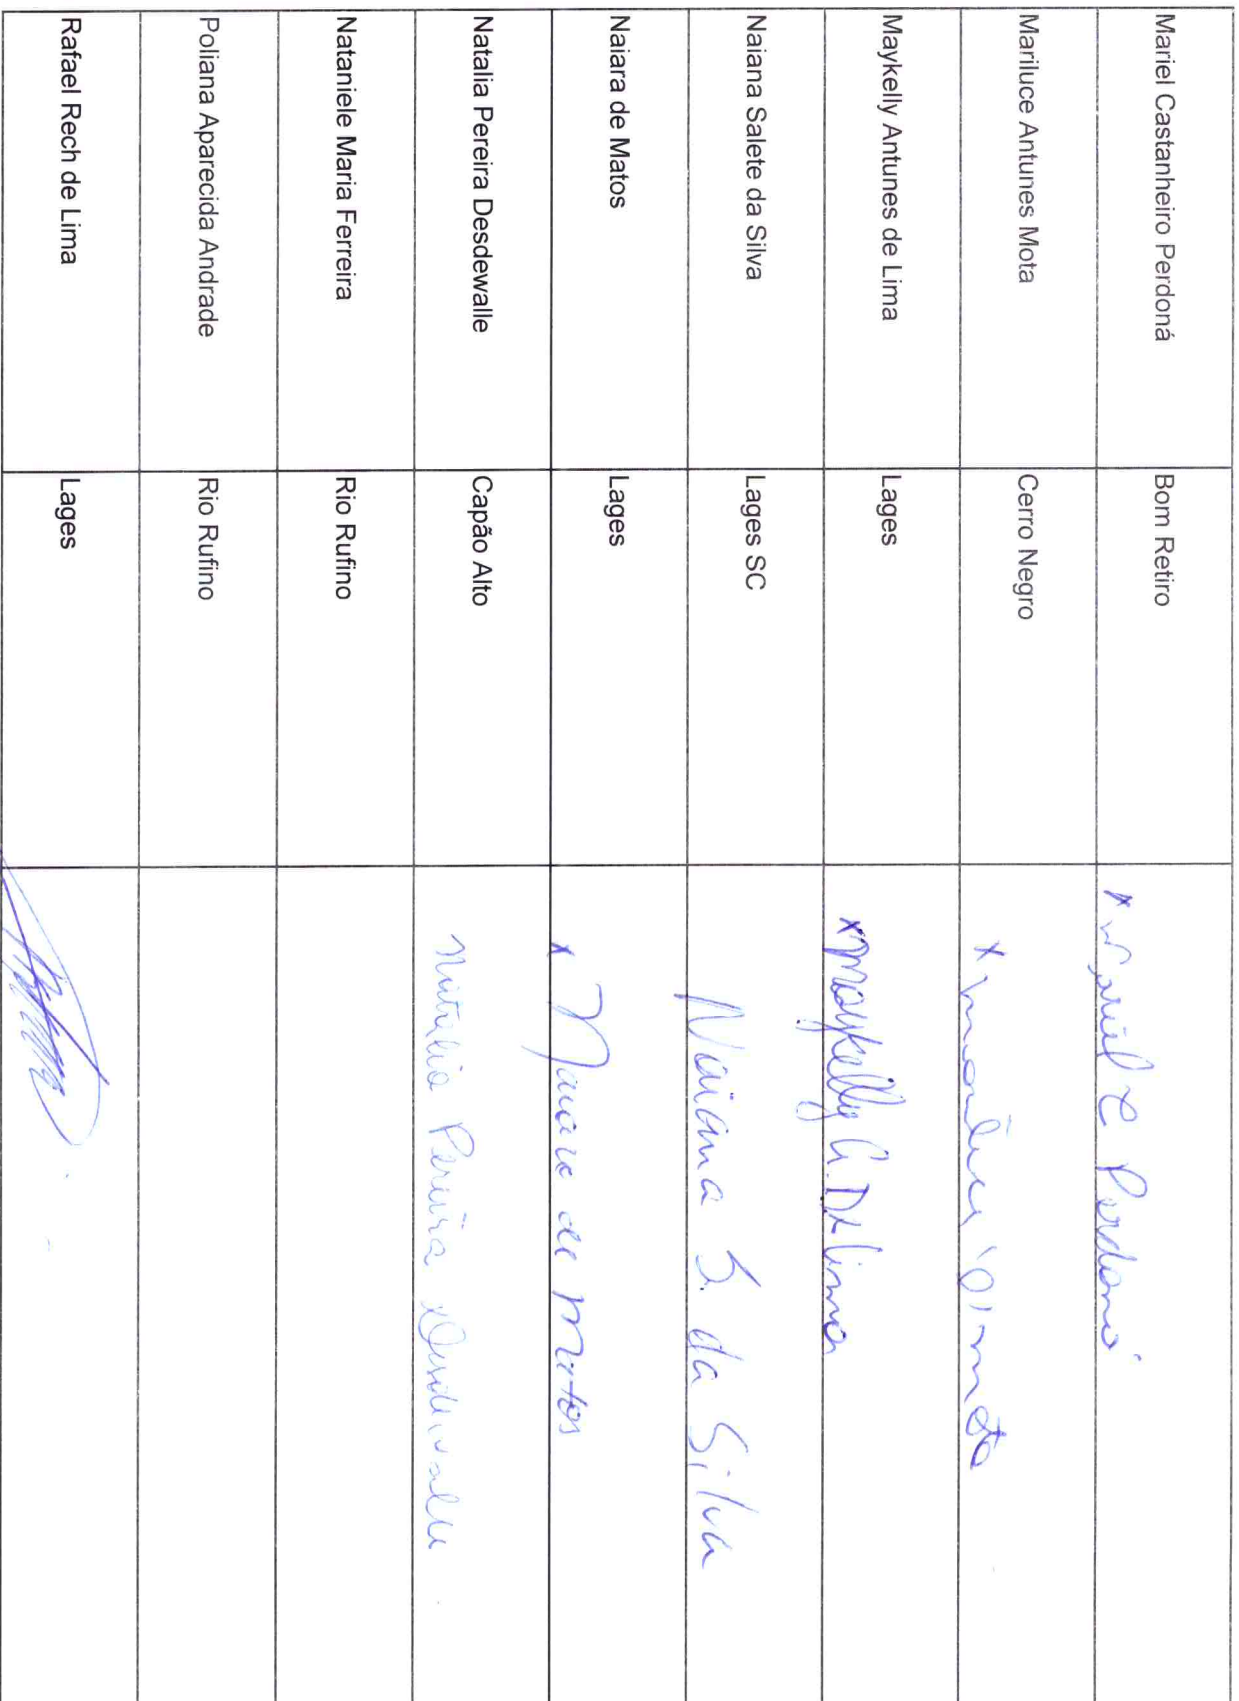 Mariel Castanheiro Perdoná Bom Retiro x Mariel C Perdoná
Mariluce Antunes Mota Cerro Negro x
Maykelly Antunes de Lima Lages x Maykelly A. De Lima
Naiana Salete da Silva Lages SC Naiana S. da Silva
Naiara de Matos Lages x Naiara de Matos
Natalia Pereira Desdewalle Capão Alto Natalia Pereira Desdewalle
Nataniele Maria Ferreira Rio Rufino
Poliana Aparecida Andrade Rio Rufino
Rafael Rech de Lima Lages